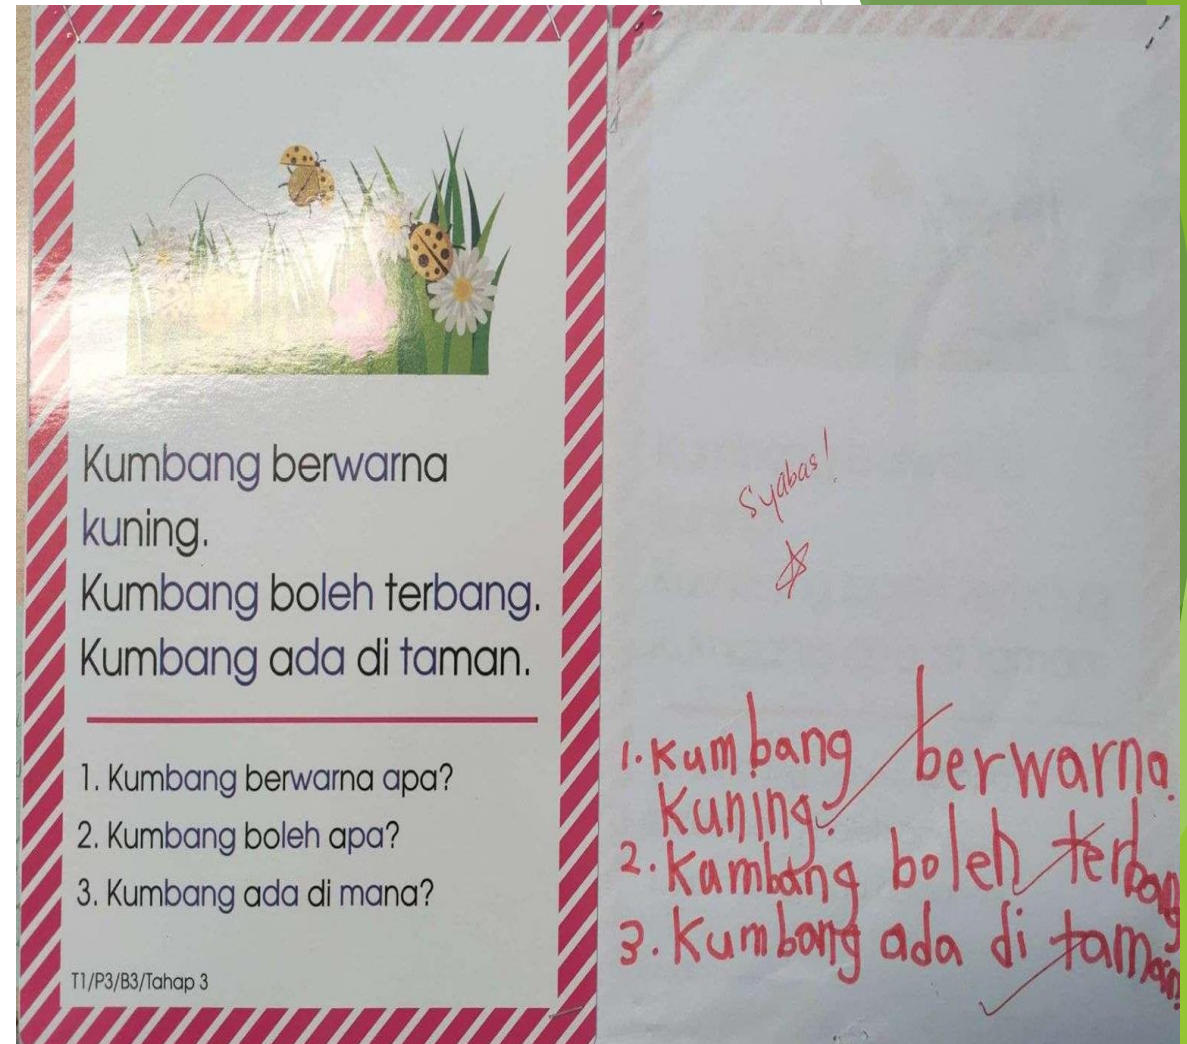 Kumbang berwarna
kuning.
Kumbang boleh terbang.
Kumbang ada di taman.
1. Kumbang berwarna apa?
2. Kumbang boleh apa?
3. Kumbang ada di mana?
T1/P3/B3/Tahap 3
Syabas!
1. Kumbang berwarna
Kuning.
2. Kumbang boleh terbang
3. Kumbang ada di taman.